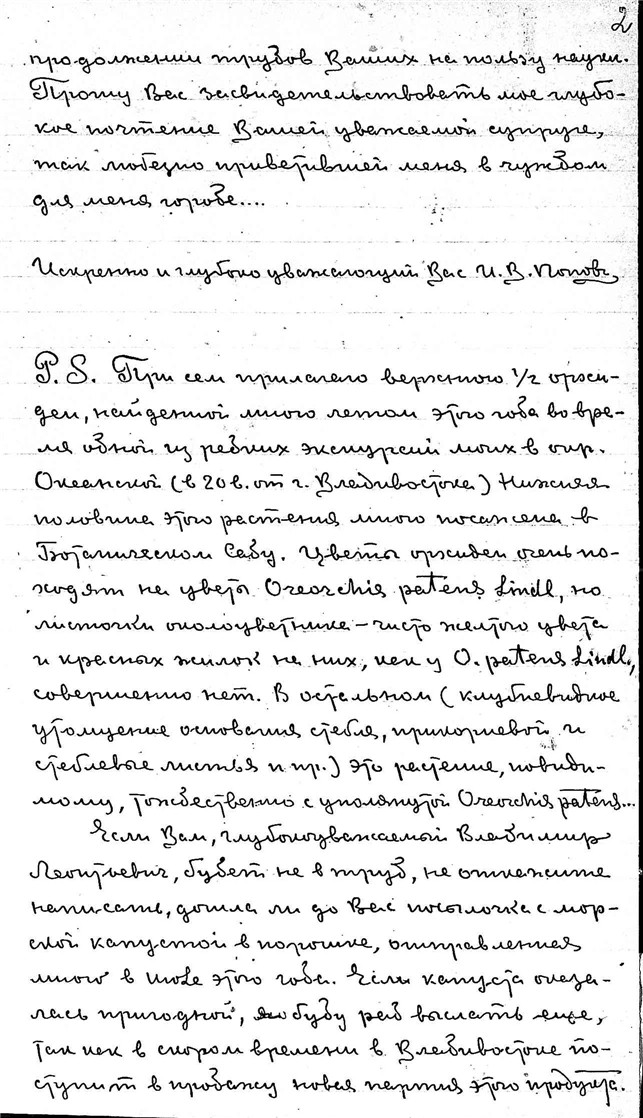 2
продолжении трудов Ваших на пользу науки.
Прошу Вас засвидетельствовать мое глубо-
кое почтение Вашей уважаемой супруге,
так любезно приветившей меня в чужом
для меня городе....
Искренно и глубоко уважающий Вас И. В. Попов.
P. S. При сем прилагаю верхнюю 1/2 орхи-
деи, найденной мною летом этого года во вре-
мя одной из редких экскурсий моих в окр.
Океанской (в 20 в. от г. Владивостока) Нижняя
половина этого растения мною посажена в
Ботаническом Саду. Цветы орхидеи очень по-
ходят на цветы Oreorchis patens Lindl, но
листочки околоцветника – чисто желтого цвета
и красных жилок на них, как у O. patens Lindl,
совершенно нет. В остальном (клубневидное
утолщение основания стебля, прикорневой и
стеблевые листья и пр.) это растение, повиди-
мому, тождественно с упомянутой Oreorchis patens...
Если Вам, глубокоуважаемый Владимир
Леонтьевич, будет не в труд, не откажите
написать, дошла ли до Вас посылочка с мор-
ской капустой в порошке, отправленная
мною в июле этого года. Если капуста оказа-
лась пригодной, буду рад выслать еще,
так как в скором времени в Владивостоке по-
ступит в продажу новая партия этого продукта.